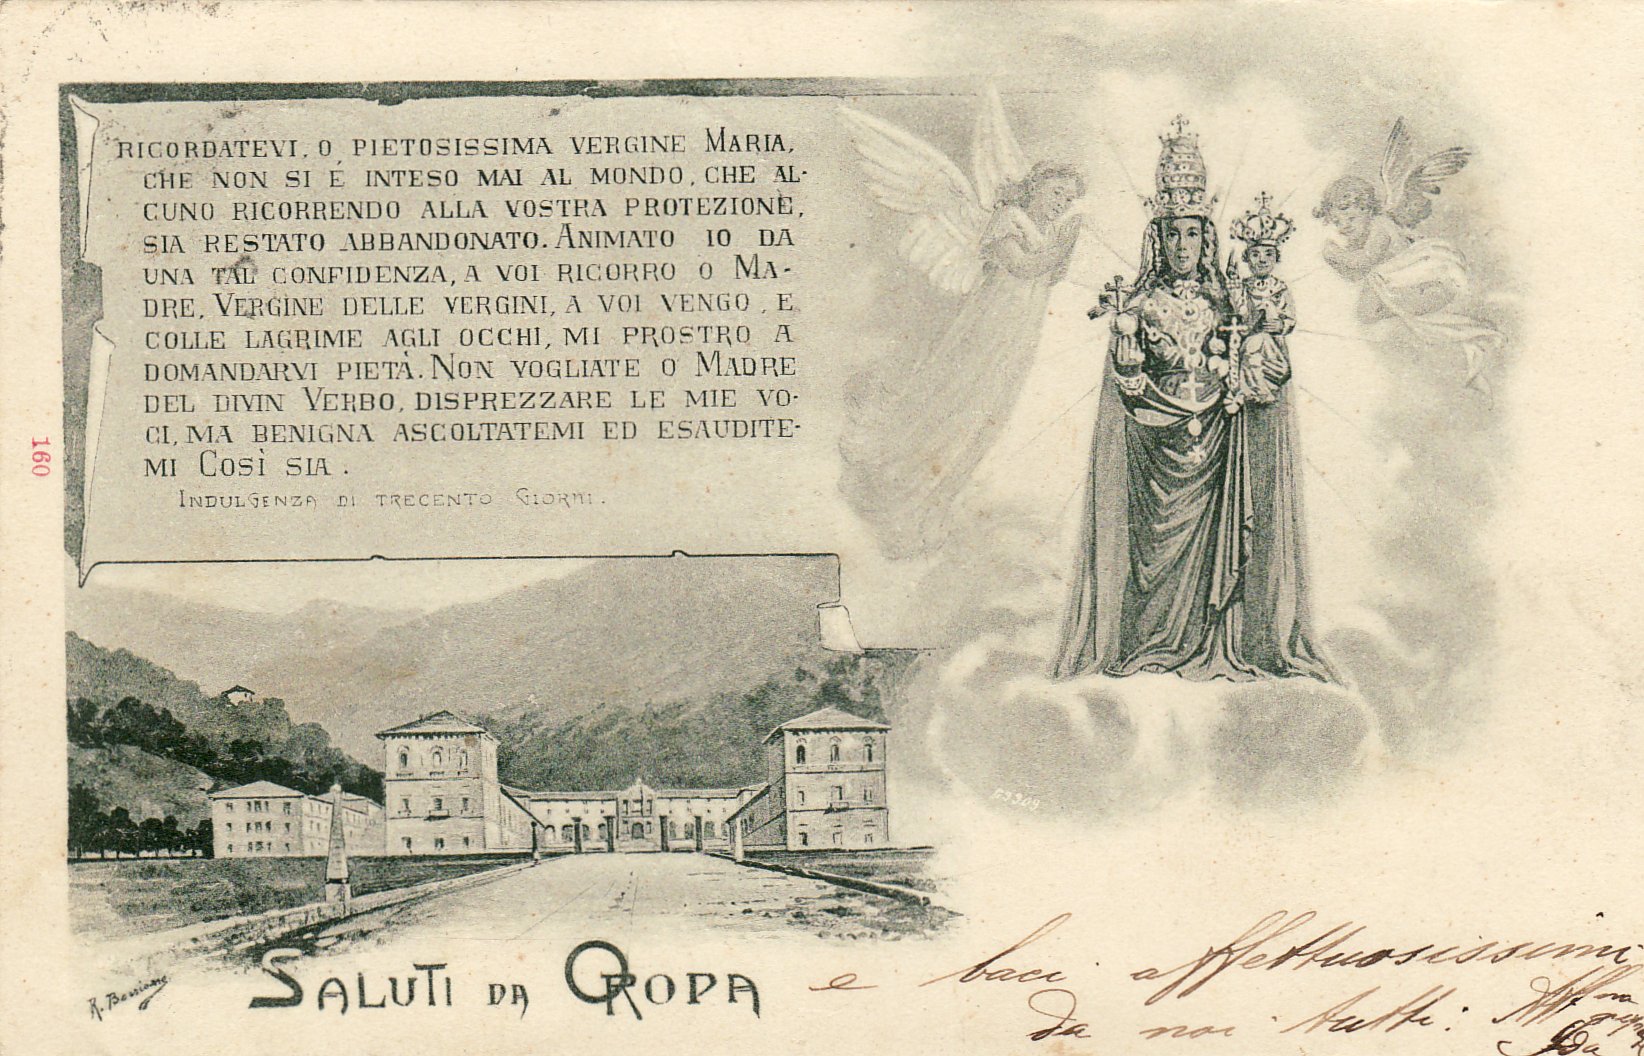 RICORDATEVI, O, PIETOSISSIMA VERGINE MARIA,
CHE NON SI È INTESO MAI AL MONDO, CHE AL-
CUNO RICORRENDO ALLA VOSTRA PROTEZIONE,
SIA RESTATO ABBANDONATO. ANIMATO IO DA
UNA TAL CONFIDENZA, A VOI RICORRO O MA-
DRE, VERGINE DELLE VERGINI, A VOI VENGO, E
COLLE LAGRIME AGLI OCCHI, MI PROSTRO A
DOMANDARVI PIETÀ. NON VOGLIATE O MADRE
DEL DIVIN VERBO, DISPREZZARE LE MIE VO-
CI, MA BENIGNA ASCOLTATEMI ED ESAUDITE-
MI COSÌ SIA.
INDULGENZA DI TRECENTO GIORNI.
160
SALUTI DA OROPA
e baci affettuosissimi
da noi tutti. Aff.ma
Ida